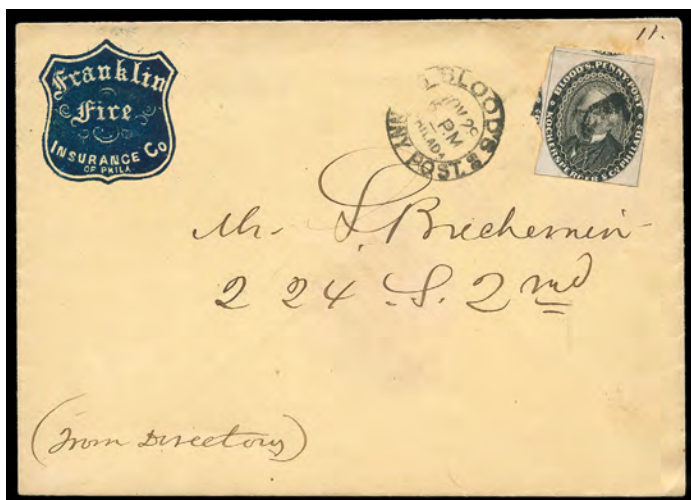 11.
Franklin
Fire
INSURANCE Co
OF PHILA
BLOOD'S PENNY POST
NOV 29
PM
PHILADA
BLOOD'S PENNY POST
KOCHERSPERGER & CO. PHILADA
Mr. L. Brechemin
224 S. 2nd
(From Directory)